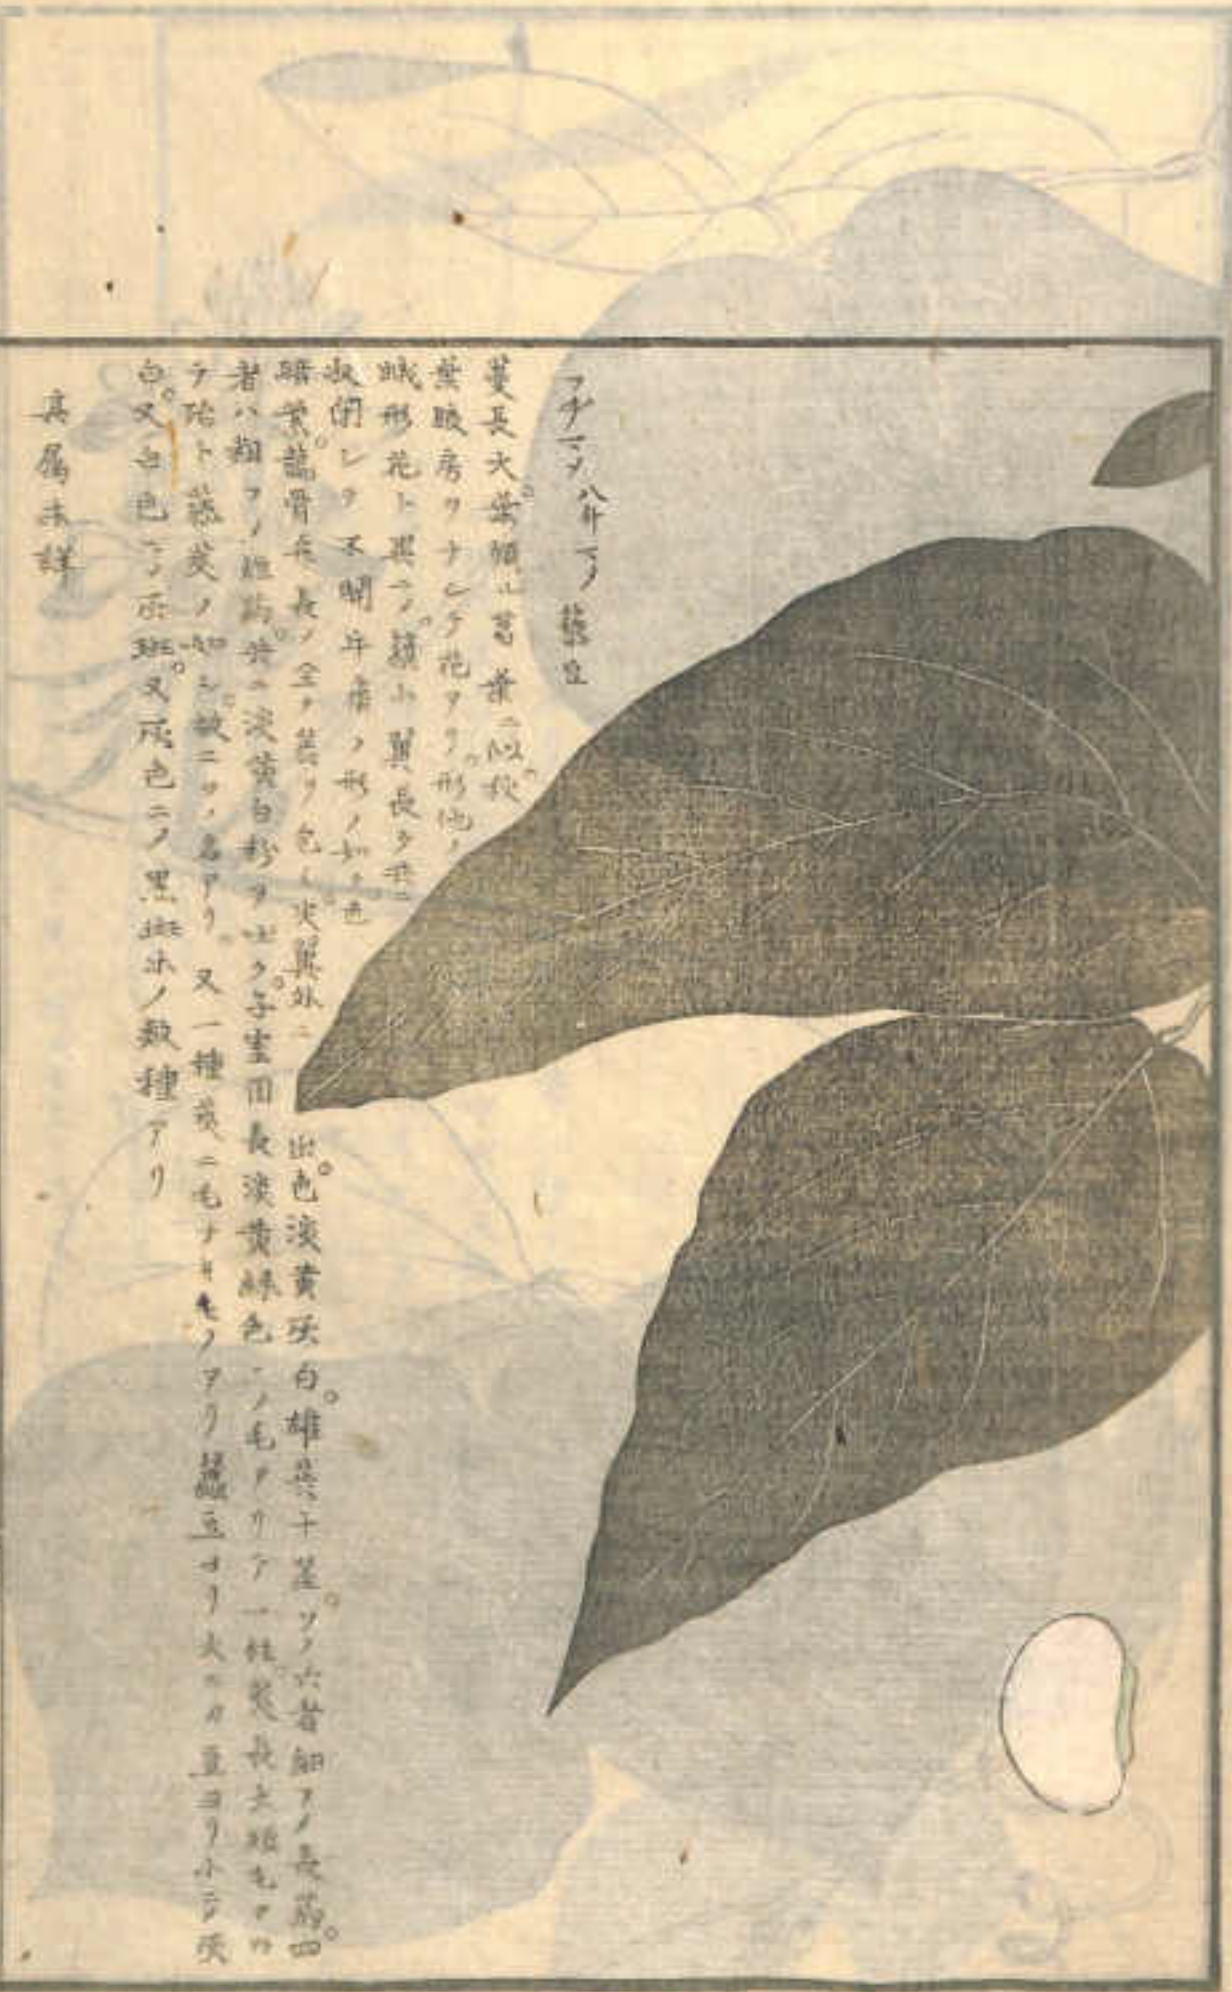 フヂマメ 八升マメ 藜豆
蔓長大葉頗ル葛葉ニ似秋
葉腋房ヲナシテ花アリ形他ノ
蛾形花ト異ニ〆額小翼長ク共ニ
収閉シテ不開 ノ形ノ如ク色
暗紫龍骨 長ノ全ク 色 尖翼外ニ出色淡黄灰白雄蕊十茎ソノ六者細ク〆長葯四
者ハ粗ク〆短葯共ニ淡黄白粉ヲ吐ク子室円長淡黄緑色ニ〆毛アリテ一柱 長大短毛アリ
テ殆ト ノ如シ故ニコノ名アリ又一種莢ニ毛ナキモノアリ蠶豆ヨリ大ニ 豆ヨリ小ニシ灰
白又白色ニ〆灰斑又灰色ニ〆黒斑ホノ数種アリ
真属未詳